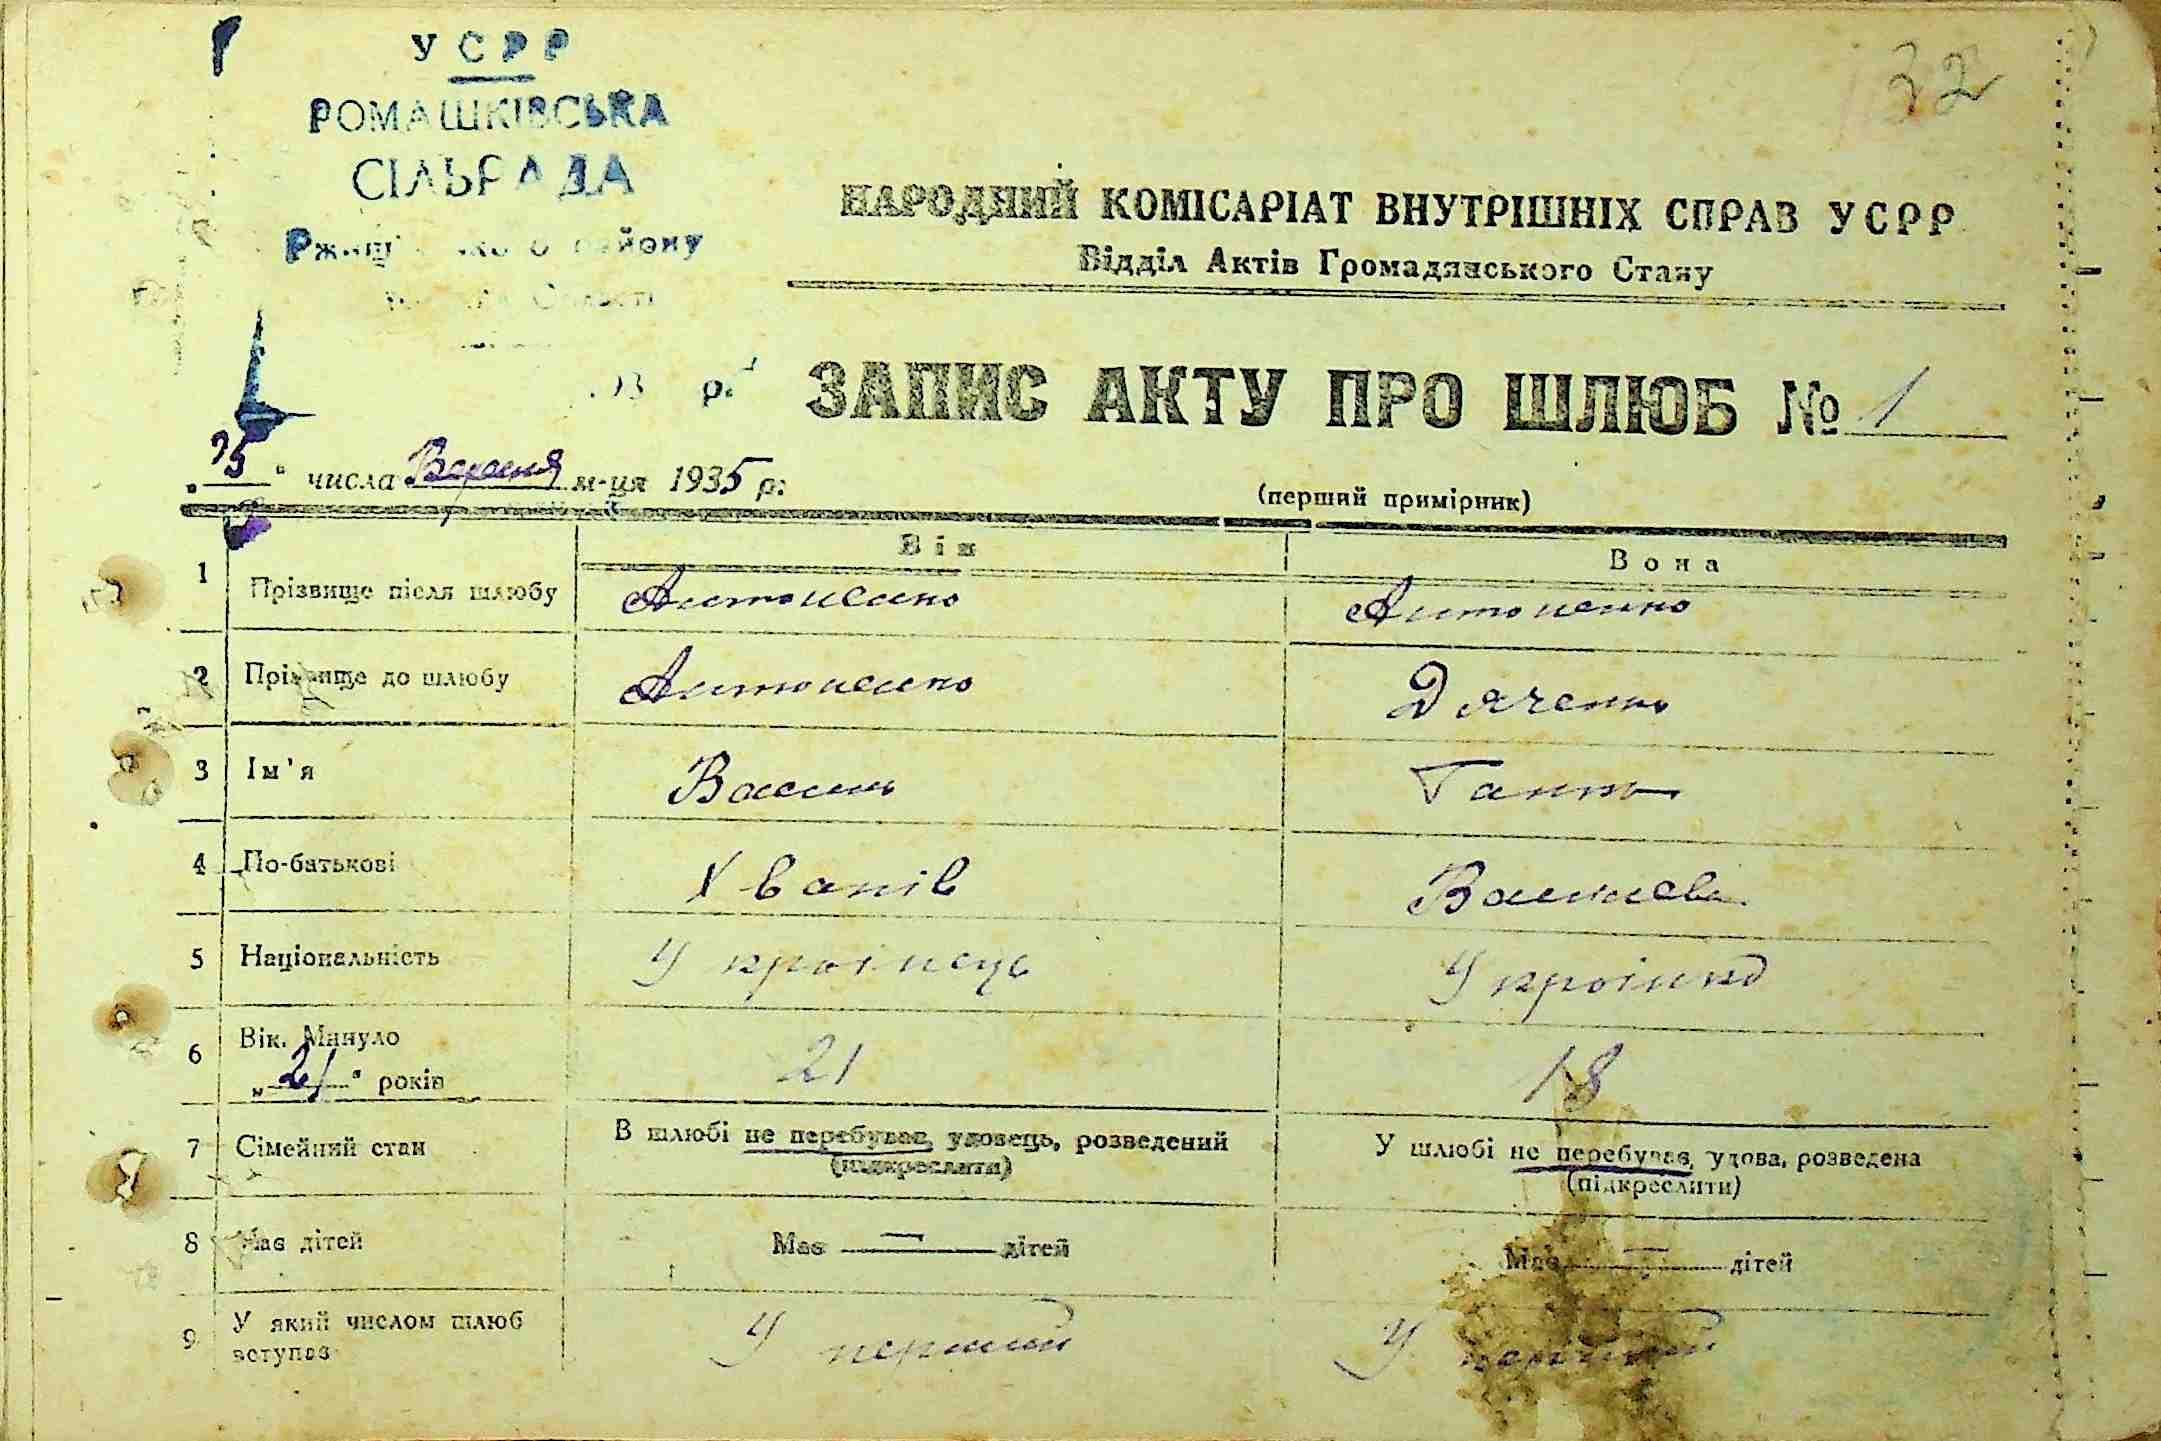 32
УСРР
РОМАШКІВСЬКА
СІЛЬРАДА
району
НАРОДНИЙ КОМІСАРІАТ ВНУТРІШНІХ СПРАВ УСРР
Відділ Актів Громадянського Стану
193 р.
ЗАПИС АКТУ ПРО ШЛЮБ № 1
числа Вересня м-ця 1935 р.
(перший примірник)
Він Вона
1 Прізвище після шлюбу Антоненко Антоненко
2 Прізвище до шлюбу Антоненко Дяченко
3 Ім'я Василь Ганна
4 По-батькові Іванів
5 Національність Украінець Украінка
6 Вік. Минуло „21" років 21 18
7 Сімейний стан В шлюбі не перебував, удовець, розведений (підкреслити) У шлюбі не перебував, удова, розведена (підкреслити)
8 Має дітей Має — дітей Має — дітей
9 У який числом шлюб вступав У перший У перший